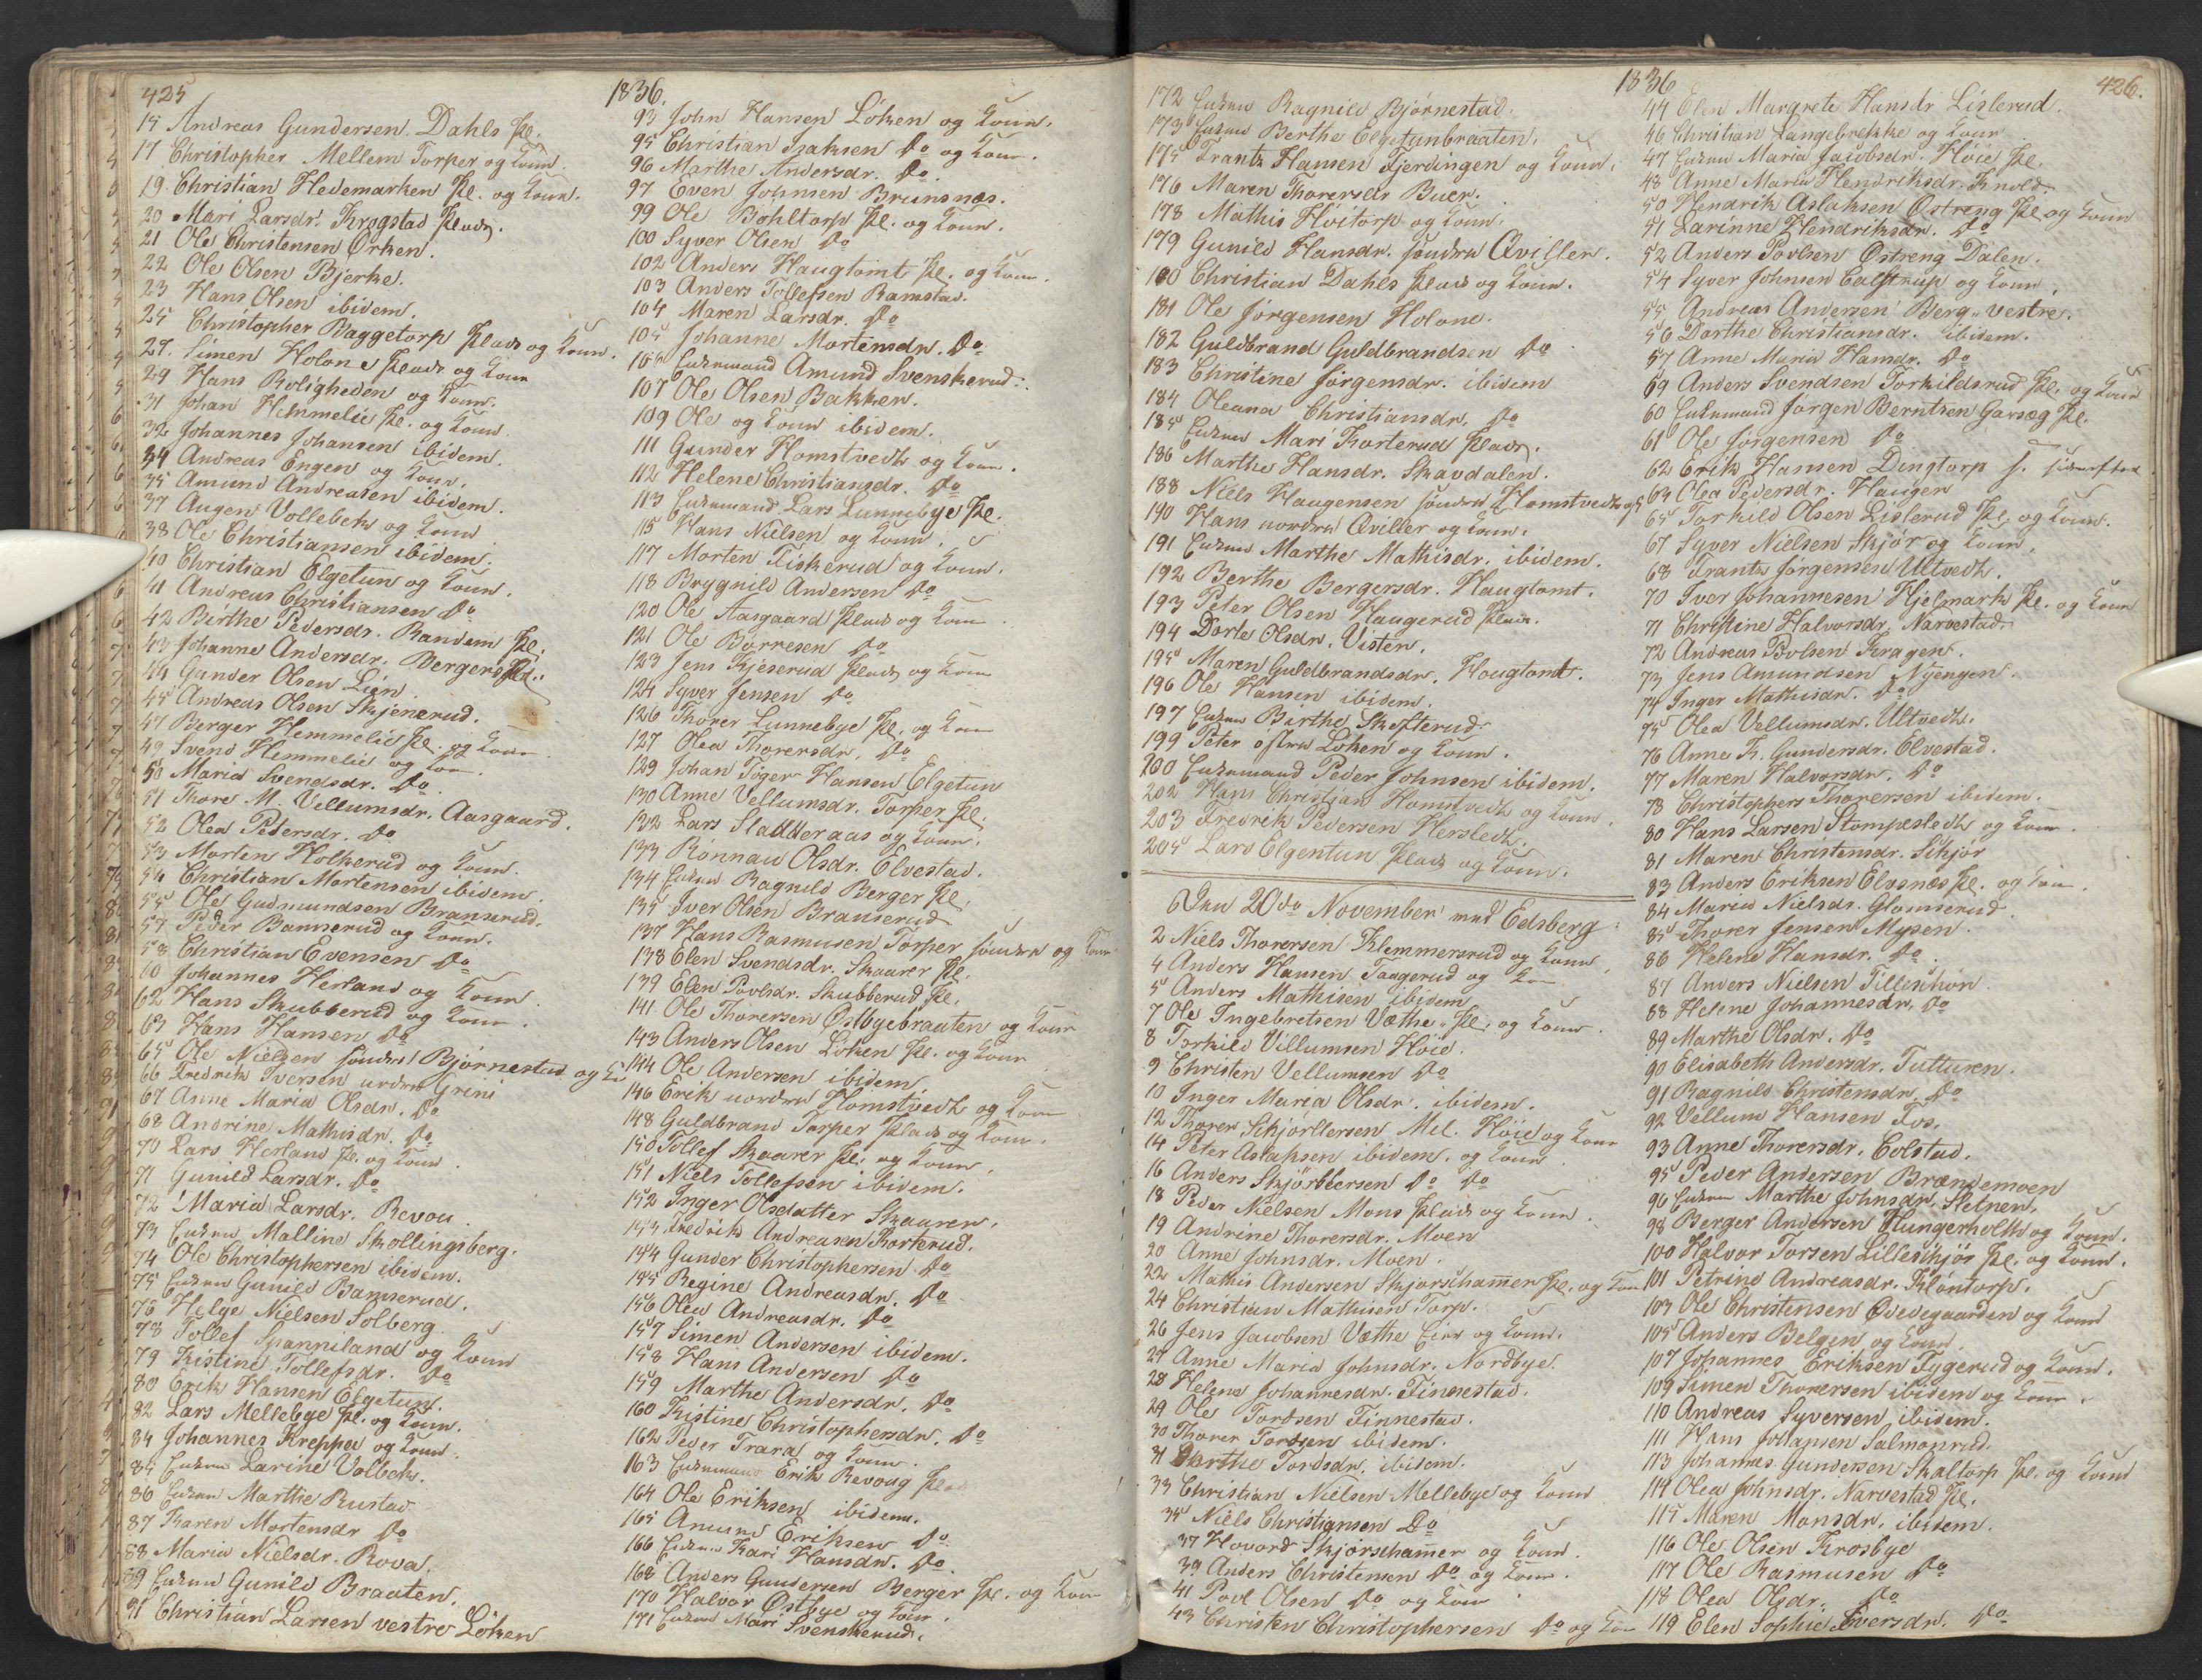 425
1836.
15 Andreas Gundersen Dahls Pl.
17 Christopher Mellem Torper og Kone.
19 Christian Hedemarken Pl. og Kone.
20 Mari Larsdr. Krogstad Plads.
21 Ole Christensen Ørken.
22 Ole Olsen Bjerke.
23 Hans Olsen ibidem.
25 Christopher Baggetorp Plads og Kone.
27. Simen Holone Plads og Kone
29 Hans Roligheden og Kone.
31 Johan Hemmelie Pl. og Kone
32 Johannes Johansen ibidem.
34 Andreas Engen og Kone.
35 Amund Andreasen ibidem.
37 Augen Vollebek og Kone
38 Ole Christiansen ibidem.
40 Christian Elgetun og Kone.
41 Andreas Christiansen Do
42 Birthe Pedersdr. Randem Pl.
43 Johanne Andersdr. Bergers Pl.
44 Gunder Olsen Lien.
45 Andreas Olsen Skjenerud.
47 Berger Hemmelie Pl. og Kone
49 Svend Hemmelie og Kone.
50 Maria Svendsdr. Do.
51 Thore M. Vellumsdr. Aasgaard.
52 Olea Pedersdr. Do
53 Morten Holkerud og Kone.
54 Christian Mortensen ibidem.
55 Ole Gudmundsen Branserud.
57 Peder Bannerud og Kone.
58 Christian Evensen Do
60 Johannes Herland og Kone.
62 Hans Skubberud og Kone.
63 Hans Hansen Do
65 Ole Nielsen søndre Bjørnestad og K
66 Fredrik Iversen nedre Grini
67 Anne Maria Olsdr. Do
68 Andrine Mathisdr. Do
70 Lars Herland Pl. og Kone
71 Gunild Larsdr. Do
72 Maria Larsdr. Revou.
73 Enken Malline Skollingsberg.
74 Ole Christophersen ibidem.
75 Enken Gunild Bamserud.
76 Helge Nielsen Solberg
78 Tollef Spanniland og Kone
79 Kistine Tollefsdr. Do
80 Erik Hansen Elgetun.
82 Lars Mellebye Pl. og Kone.
84 Johannes Kreppa og Kone.
85 Enken Larine Volbek.
86 Enken Marthe Rustad
87 Karen Mortensdr Do
88 Maria Nielsdr. Rova.
89 Enken Gunild Braaten.
91 Christian Larsen vestre Løken
93 John Hansen Løken og Kone.
95 Christian Isaksen Do og Kone.
96 Marthe Andersdr. Do.
97 Even Johnsen Brunsnæs.
99 Ole Bohltorp Pl. og Kone.
100 Syver Olsen Do
102 Anders Haugtomt Pl. og Kone.
103 Anders Tollefsen Ramstad.
104 Maren Larsdr. Do
105 Johanne Mortensdr. Do
106 Enkemand Amund Svenskerud.
107 Ole Olsen Bakken.
109 Ole og Kone ibidem.
111 Gunder Homstvedt og Kone.
112 Helene Christiansdr. Do
113 Enkemand Lars Lunnebye Pl.
115 Hans Nielsen og Kone.
117 Morten Fiskerud og Kone.
118 Brygnild Andersen Do
120 Ole Aasgaard Plads og Kone.
121 Ole Børresen Do
123 Jens Kjeserud Plads og Kone
124 Syver Jensen Do
126 Thorer Lunnebye Pl. og Kone
127 Olea Thorersdr. Do
129 Johan Tøger Hansen Elgetun
130 Anne Vellumsdr. Torper Pl.
132 Lars Sladderaas og Kone.
133 Rønnau Olsdr. Elvestad.
134 Enken Ragnild Berger Pl.
135 Iver Olsen Branserud
137 Hans Rasmusen Torper søndre og Kone
138 Elen Svendsdr. Skaarer Pl.
139 Elen Povlsdr. Skubberud Pl.
141 Ole Thorersen Østbyebraaten og Kone
143 Anders Olsen Løken Pl. og Kone
144 Ole Andersen ibidem.
146 Erik nordre Homstvedt og Kone
148 Guldbrand Torper Plads og Kone.
150 Tollef Skaarer Pl. og Kone.
151 Niels Tollefsen ibidem.
152 Inger Olsdatter Skaarer.
153 Fredrik Andreasen Thorterud.
154 Gunder Christophersen Do
155 Regine Andreasdr. Do
156 Olea Andreasdr. Do
157 Simen Andersen ibidem.
158 Hans Andersen Do
159 Marthe Andersdr. Do
160 Kistine Christophersdr. Do
162 Peder Trara og Kone.
163 Enkemand Erik Revoug Plad
164 Ole Eriksen ibidem.
165 Amund Eriksen Do
166 Enken Kari Hansdr. Do.
168 Anders Gundersen Berger Pl. og Kone
170 Halvor Østbye og Kone.
171 Enken Mari Svenskerud.
1836
426.
172 Enken Ragnild Bjørnestad.
173 Enken Berthe Elgetunbraaten.
175 Frantz Hansen Fjerdingen og Kone.
176 Maren Thorersdr Buer.
178 Mathis Høitorp og Kone.
179 Gunild Hansdr. søndre Qviller.
180 Christian Dahls Plads og Kone.
181 Ole Jørgensen Holone.
182 Guldbrand Guldbrandsen Do
183 Christine Jørgensdr. ibidem
184 Oleana Christiansdr. Do
185 Enken Mari Thorterud Plads.
186 Marthe Hansdr. Skavdalen.
188 Niels Haagensen søndre Homstvedt og K
190 Hans nordre Qviller og Kone.
191 Enken Marthe Mathisdr. ibidem.
192 Berthe Bergersdr. Haugtomt.
193 Peter Olsen Haugerud Plads.
194 Dorte Olsdr. Visten.
195 Maren Guldbrandsdr. Haugtomt.
196 Ole Hansen ibidem.
197 Enken Birthe Skofterud.
199 Peter østre Løken og Kone.
200 Enkemand Peder Johnsen ibidem.
202 Hans Christian Homstvedt og Kone.
203 Fredrik Pedersen Hersledt.
205 Lars Elgentun Plads og Kone.
Den 20de November med Edsberg
2 Niels Thorersen Klemmersrud og Kone.
4 Anders Hansen Taagerud og Kone
5 Anders Mathisen ibidem
7 Ole Ingebretsen Væthe Pl. og Kone.
8 Torkild Villumsen Høie.
9 Christen Vellumsen Do
10 Inger Maria Olsdr. ibidem.
12 Thorer Skjørllersen Mel. Høie og Kone
14 Peter Aslaksen ibidem. og Kone.
16 Anders Skjørbbersen Do Do
18 Peder Nielsen Mons Plads og Kone.
19 Andrine Thorersdr. Moen
20 Anne Johnsdr. Moen.
22 Mathis Andersen Skjørshammer Pl. og Kone
24 Christian Mathisen Torp.
26 Jens Jacobsen Væthe Eier og Kone.
27 Anne Maria Johnsdr. Nordbye.
28 Helene Johannesdr. Finnestad.
29 Ole Tordsen Finnestad.
30 Thorer Tordsen ibidem.
31 Dorthe Tordsdr. ibidem.
33 Christian Nielsen Mellebye og Kone
35 Niels Christiansen Do
37 Hovard Skjørshammer og Kone.
39 Anders Christensen Do og Kone.
41 Povl Olsen Do og Kone
43 Christen Christophersen Do og Kone
44 Elen Margrete Hansdr Lislerud.
46 Christian Langebrekke og Kone
47 Enken Maria Jacobsdr. Høie Pl.
48 Anne Maria Hendriksdr. Knold.
50 Hendrik Aslaksen Østreng Pl. og Kone
51 Larinne Hendriksdr. Do
52 Anders Povlsen Østreng Dalen.
54 Syver Johnsen Calstrup og Kone.
55 Andreas Andersen Berg vestre.
56 Dorthe Christiansdr. ibidem.
57 Anne Maria Hansdr. Do
59 Anders Svendsen Torkildsrud Pl. og Kone
60 Enkemand Jørgen Berntzen Garseg Pl.
61 Ole Jørgensen Do
62 Erik Hansen Dingtorp s. sidenefter
63 Olea Pedersdr. Haugen
65 Torkild Olsen Lislerud Pl. og Kone.
67 Syver Nielsen Skjør og Kone.
68 Frantz Jørgensen Ultvedt.
70 Iver Johannesen Hjelmark Pl. og Kone
71 Christine Halvorsdr. Narvestad.
72 Andreas Povlsen Kragen.
73 Jens Amundsen Nyengen.
74 Inger Mathisdr. Do
75 Olea Vellumsdr. Ultvedt.
76 Anne K. Gundersdr. Elvestad.
77 Maren Halvorsdr. Do
78 Christophers Thorersen ibidem.
80 Hans Larsen Stompesledt og Kone.
81 Maren Christensdr. Skjør
83 Anders Eriksen Elvsnæs Pl. og Kone.
84 Maria Nielsdr. Glomserud.
85 Thorer Jensen Mysen.
86 Helene Hansdr. Do.
87 Anders Nielsen Tilleskjør
88 Helene Johannesdr. Do
89 Marthe Olsdr. Do
90 Elisabeth Andersdr. Tutturen.
91 Ragnild Christensdr. Do
92 Vellum Hansen Fos.
93 Anne Thorersdr. Colstad.
95 Peder Andersen Brændemoen
96 Enken Marthe Johnsdr. Sletner.
98 Berger Andersen Hungerholth og Kone.
100 Halvor Torsen Lilleskjør Pl. og Kone.
101 Petrine Andreasdr. Kløntorp.
103 Ole Christensen Ødegaarden og Kone
105 Anders Belgen og Kone
107 Johannes Eriksen Tygerud og Kone.
109 Simen Thorersen ibidem og Kone.
110 Andreas Syversen ibidem.
111 Hans Johansen Salmonrud.
113 Johannes Gundersen Skaltorp Pl. og Kone
114 Olea Johnsdr. Narvestad Pl.
115 Maren Monsdr. ibidem.
116 Ole Olsen Krosbye
117 Ole Rasmusen Do
118 Olea Olsdr. Do
119 Elen Sophie Sversdr. Do